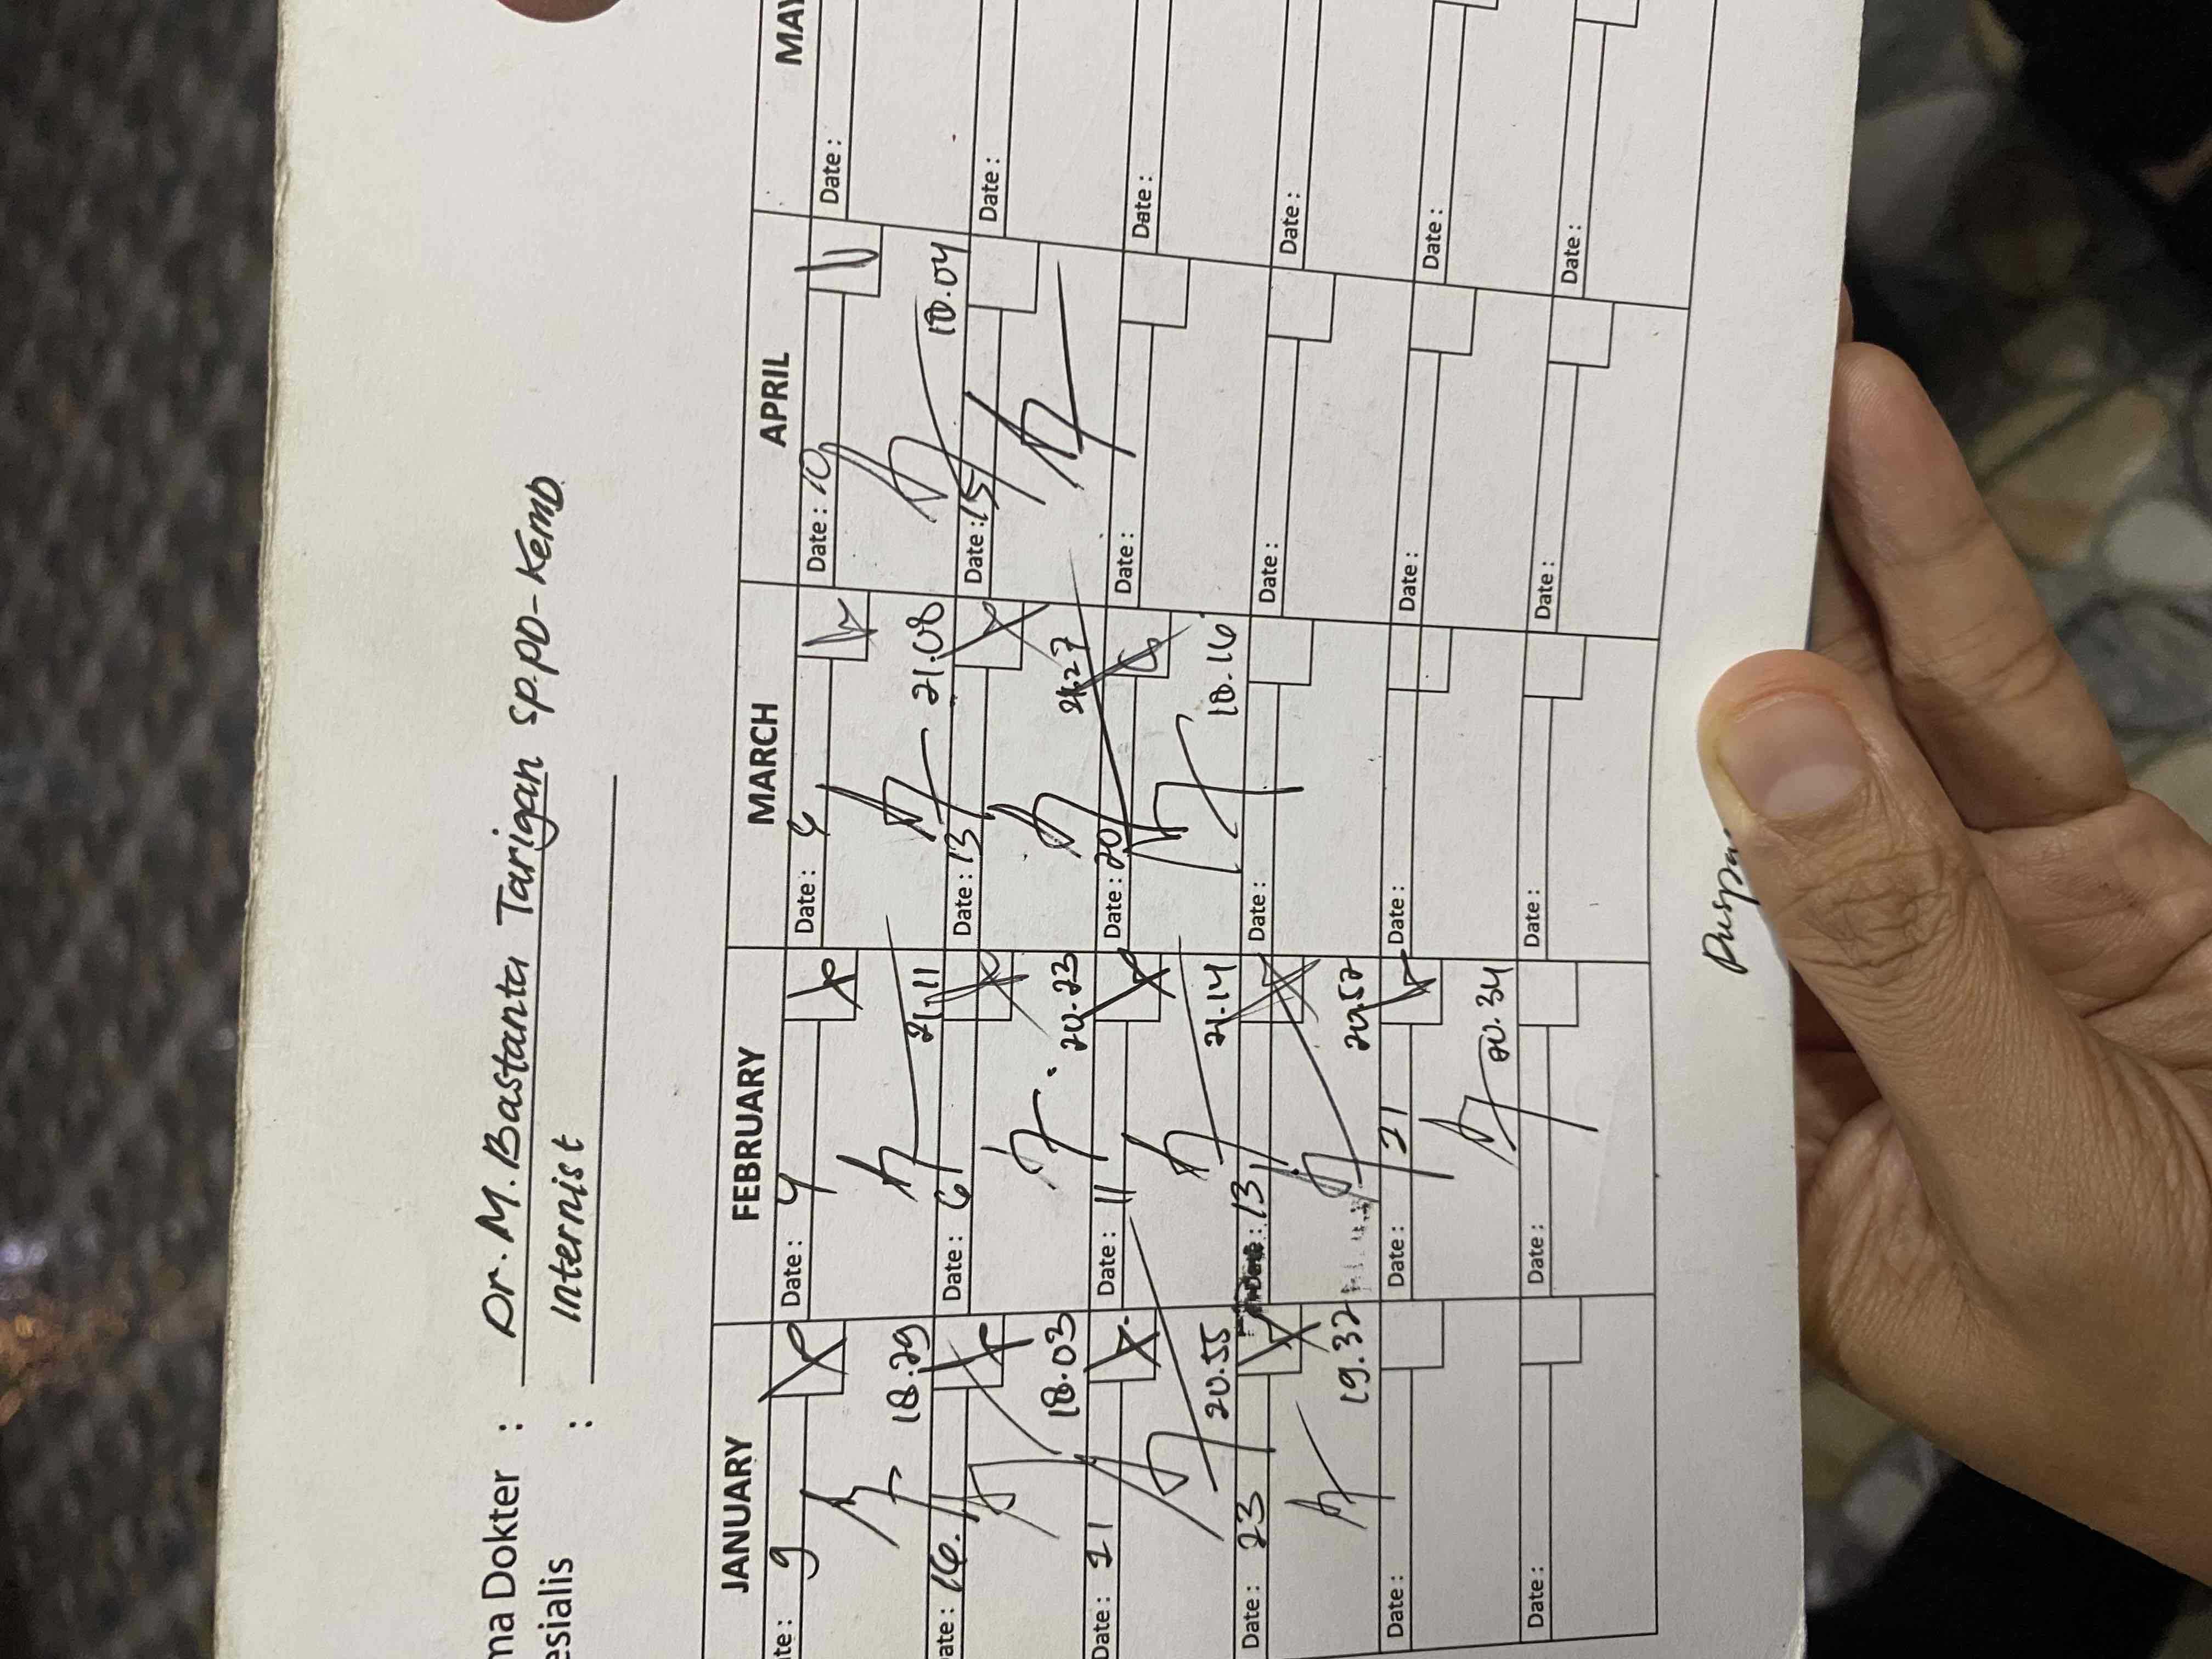 ma Dokter : Dr. M. Bastanta Tarigan Sp.PD-Kemb
esialis : Internist
JANUARY FEBRUARY MARCH APRIL MAY
te : 9 Date : 4 Date : Date : 10 Date :
18.29 21.11 21.08 18.04
ate : 16. Date : 6 Date : 13 Date : 15 Date :
18.03 20.23
Date : 21 Date : 11 Date : 20 Date : Date :
20.55 21.14 18.16
Date : 23 Date : 13 Date : Date : Date :
19.32 20.52
Date : Date : 21 Date : Date : Date :
20.34
Date : Date : Date : Date : Date :